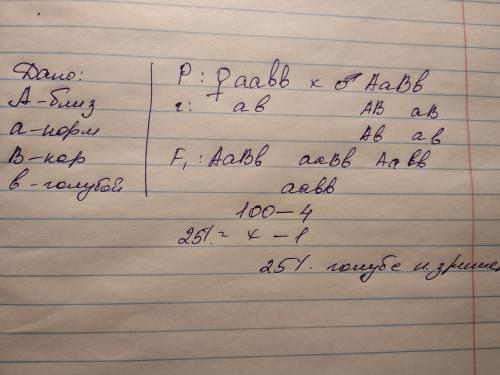 Дано:
А - близ
а - норм
В - кар
в - голубой
Р : ♀ аавв х ♂ АаВв
г : ав АВ аВ
Ав ав
F₁ : АаВв ааВв Аавв
аавв
100 – 4
25% = х – 1
25% голубе н. зрише